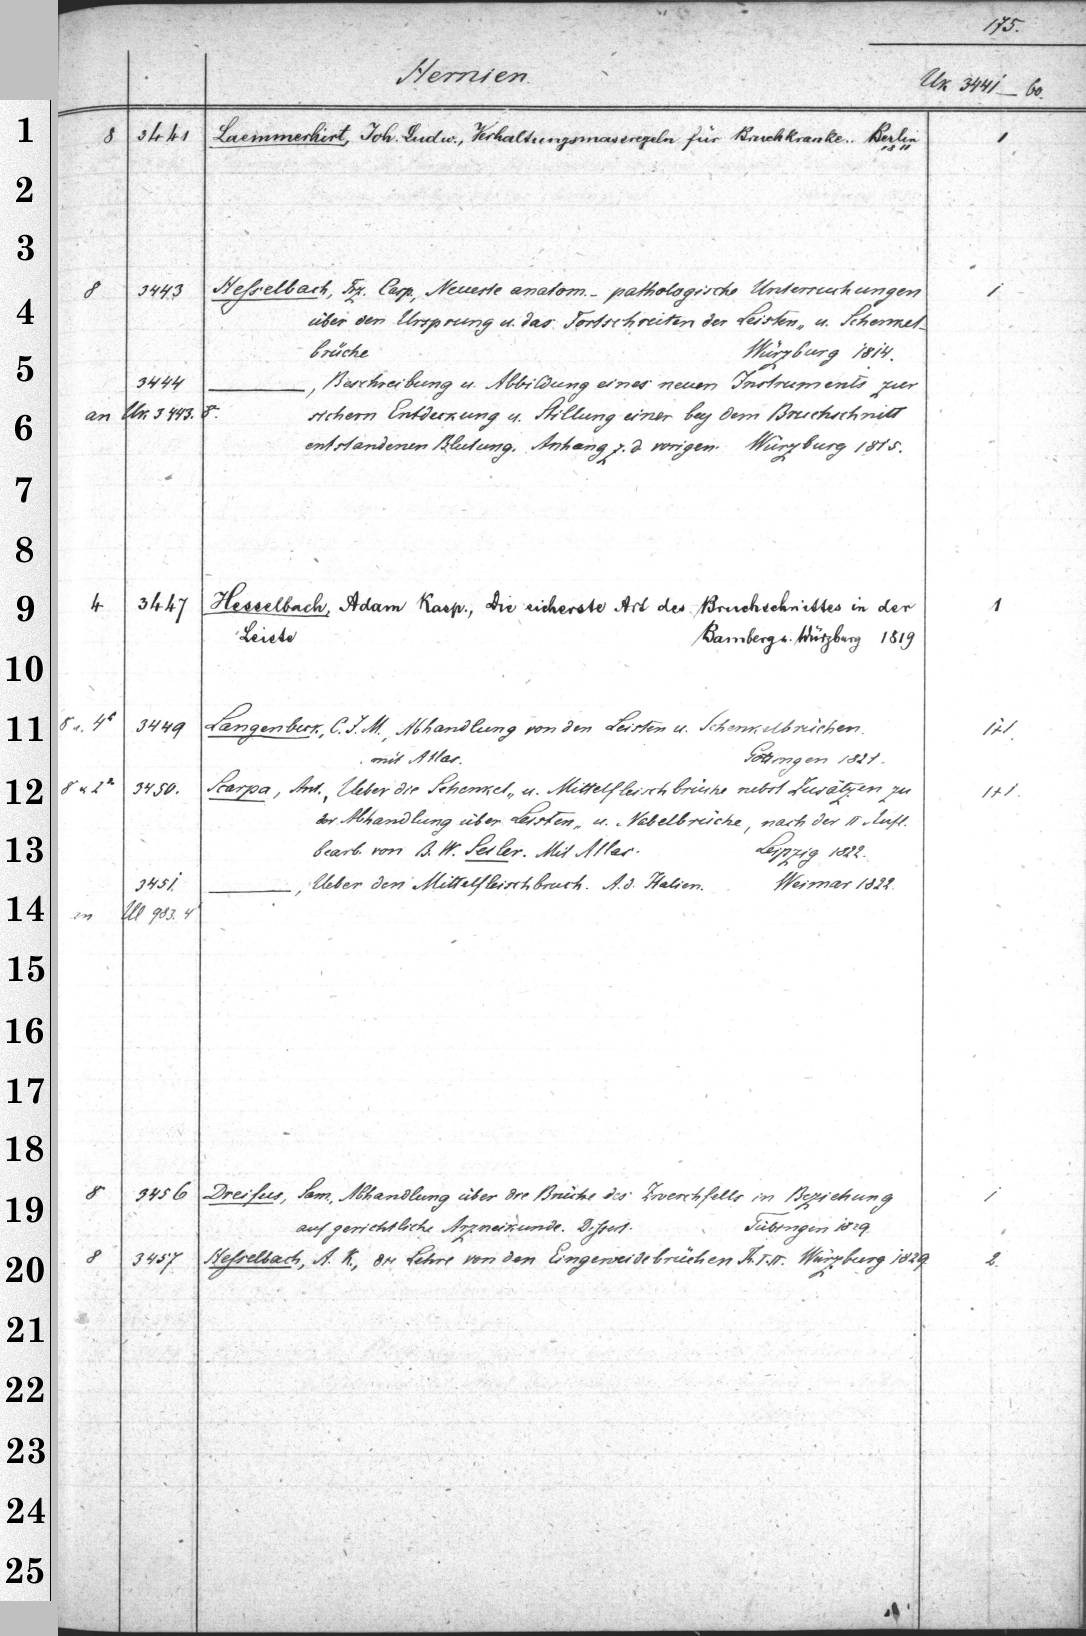 175.
Hernien. Uk 3441 — 60.
1 8 3441 Laemmerhirt, Joh. Ludw., Verhaltungsmassregeln für Bruchkranke.. Berlin 1
1811
2
3
8 3443 Hesselbach, Frz. Casp., Neueste anatom.- pathologische Untersuchungen 1
4 über den Ursprung u. das Fortschreiten der Leisten- u. Schenkel-
brüche Würzburg 1814.
5 3444 ———, Beschreibung u. Abbildung eines neuen Instruments zur
6 an Uk 3443. 8. sichern Entdeckung u. Stillung einer bey dem Bruchschnitt
entstandenen Blutung. Anhang z. d. vorigen. Würzburg 1815.
7
8
9 4 3447 Hesselbach, Adam Kasp., Die sicherste Art des Bruchschnittes in der 1
Leiste Bamberg u. Würzburg 1819
10
11 8 u. 4° 3449 Langenbeck, C. J. M., Abhandlung von den Leisten u. Schenkelbrüchen. 1+1.
mit Atlas. Göttingen 1821.
12 8 u 2° 3450. Scarpa, Ant., Ueber die Schenkel- u. Mittelfleischbrüche nebst Zusätzen zu 1+1.
der Abhandlung über Leisten- u. Nabelbrüche, nach der II Aufl.
13 bearb. von B. W. Seiler. Mit Atlas. Leipzig 1822.
3451 ———, Ueber den Mittelfleischbruch. A. d. Italien. Weimar 1822
14 an Ul 983. 4°
15
16
17
18
19 8 3456 Dreifus, Sam., Abhandlung über die Brüche des Zwerchfells in Beziehung 1
auf gerichtliche Arzneikunde. Dissert. Tübingen 1829
20 8 3457 Hesselbach, A. K., die Lehre von den Eingeweidebrüchen Th. I. II. Würzburg 1829 2.
21
22
23
24
25